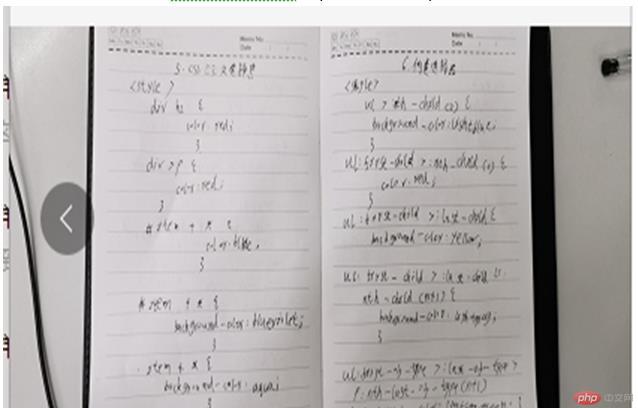 Memo No.
Date
5. CSS 上下文选择器
<style>
div h2 {
color: red;
}
div > p {
color: red;
}
# item + * {
color: blue;
}
# item + * {
background-color: blueviolet;
}
. item + * {
background-color: aqua;
{
Memo No.
Date
6. 构造选择器
<style>
ul > nth-child (2) {
background-color: lightblue;
}
ul: first-child > : nth-child (2) {
color: red;
}
ul: first-child > : last-child {
background-color: yellow;
ul: first-child > : last-child
nth-child (n+1) {
background-color: lightgray;
}
ul: first-of-type > : last-of-type >
: nth-last-of-type (n+1)
php 中文网